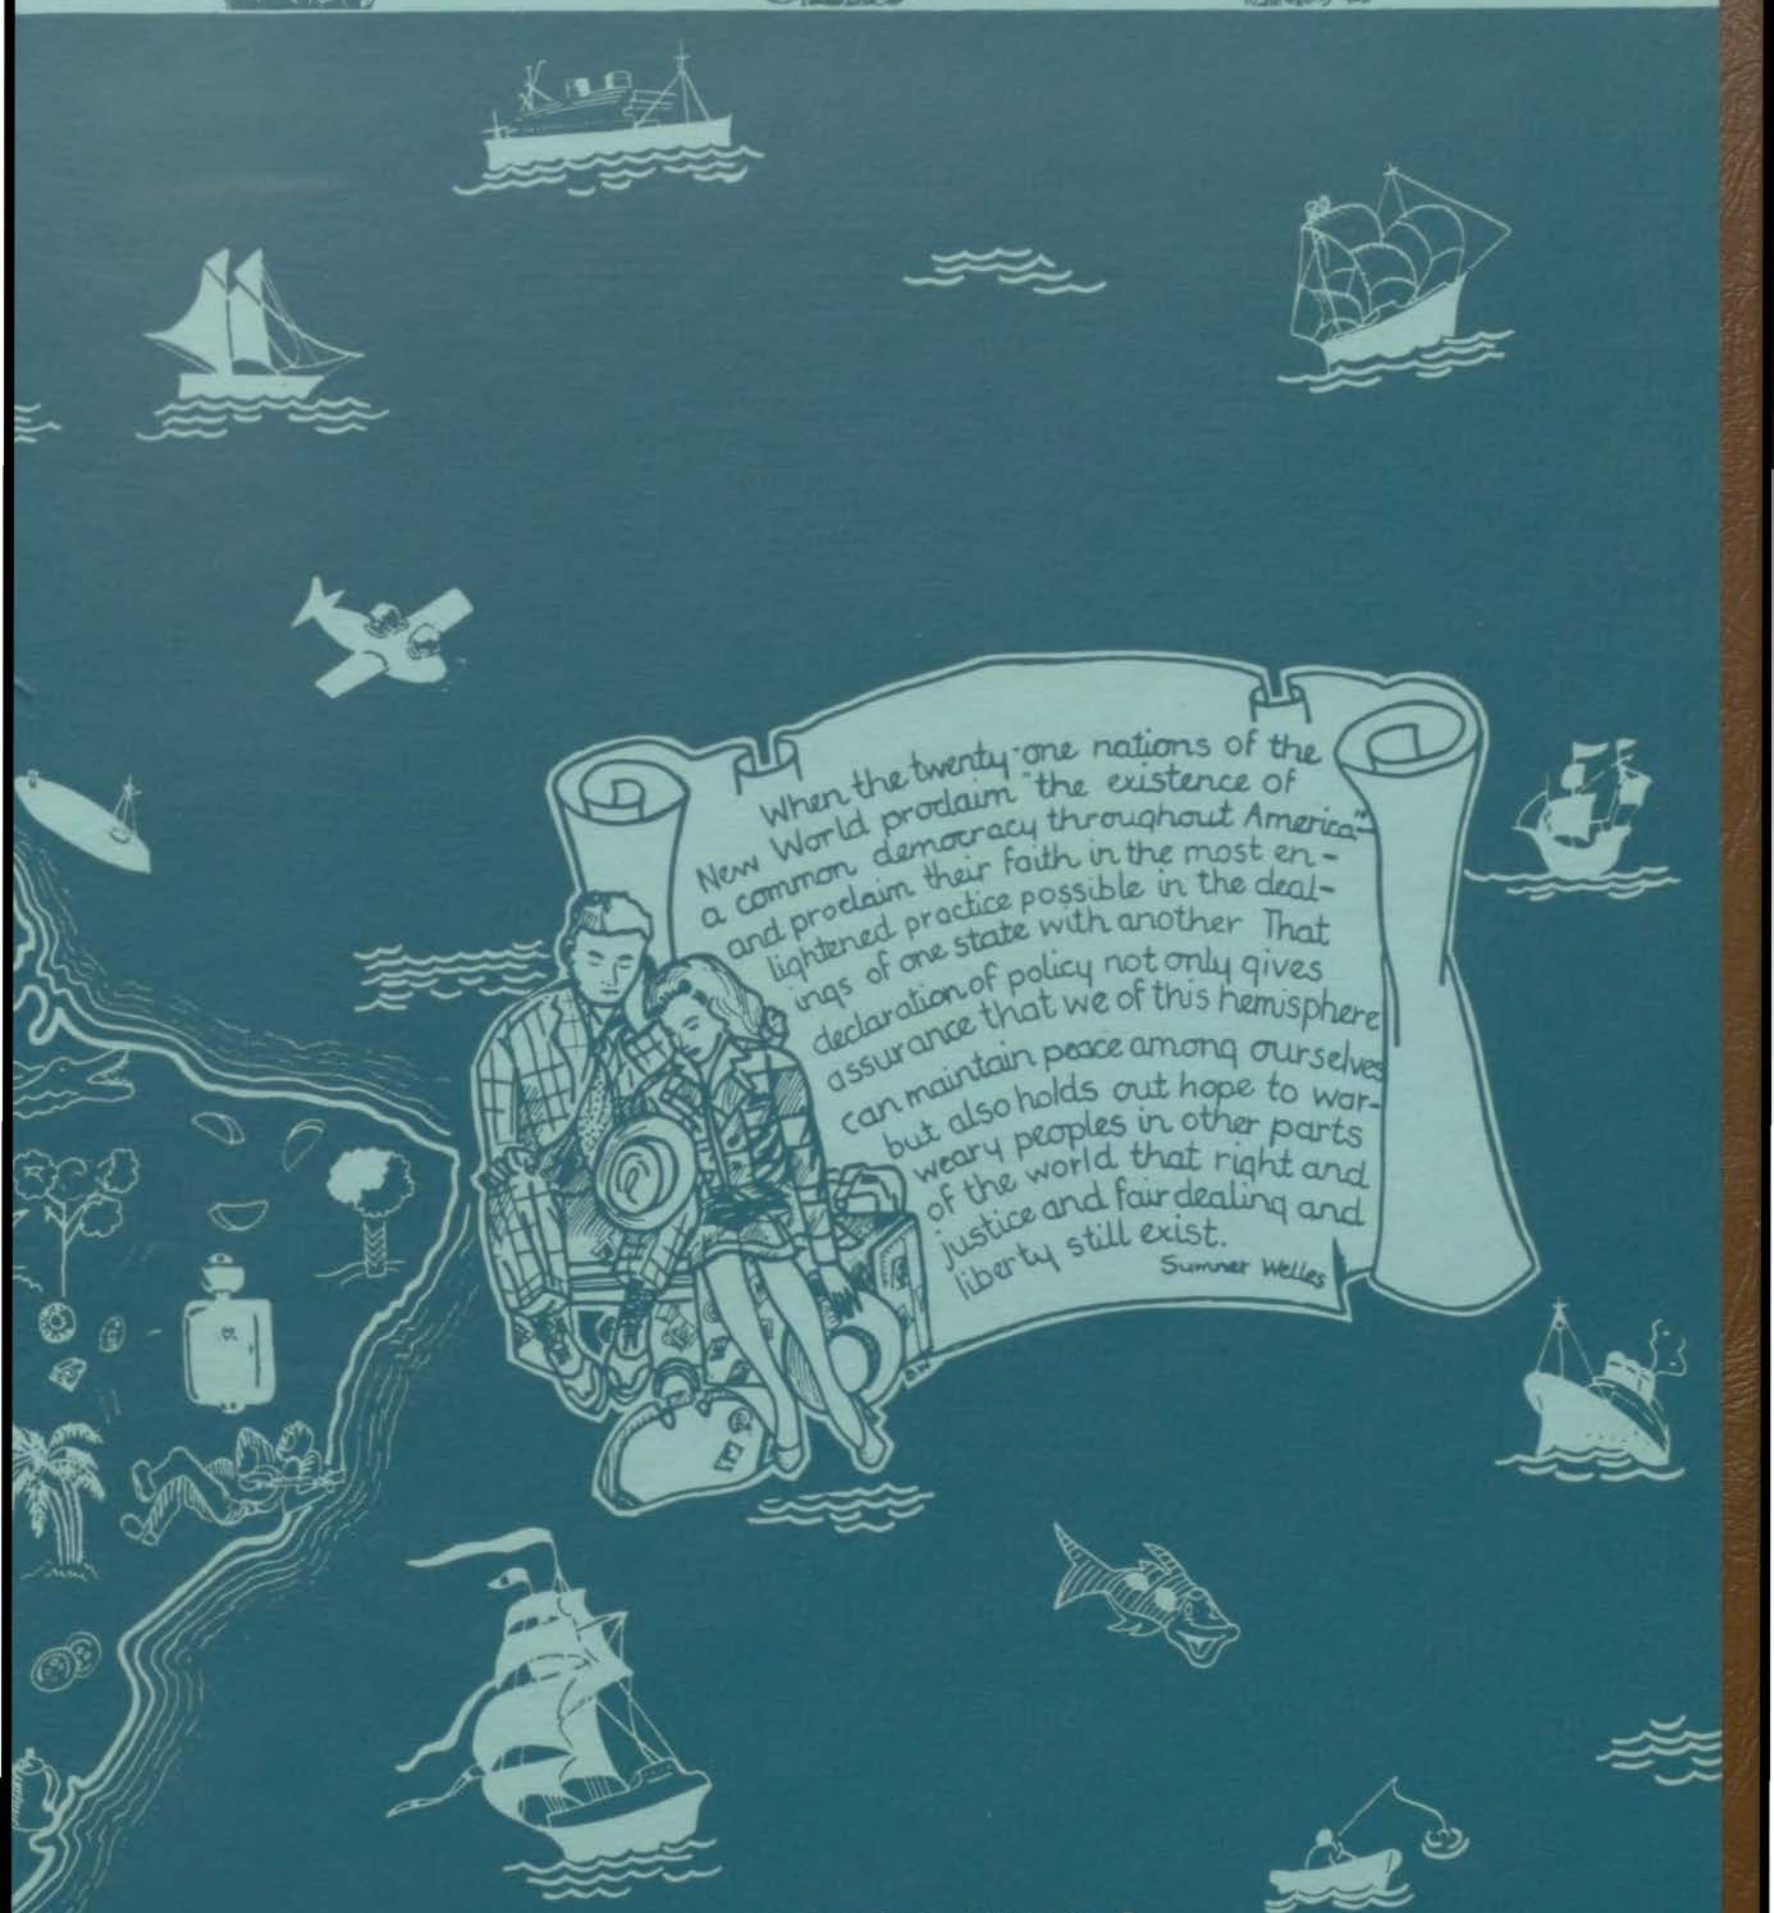 When the twenty-one nations of the
New World proclaim "the existence of
a common democracy throughout America"
and proclaim their faith in the most en-
lightened practice possible in the deal-
ings of one state with another That
declaration of policy not only gives
assurance that we of this hemisphere
can maintain peace among ourselves
but also holds out hope to war-
weary peoples in other parts
of the world that right and
justice and fair dealing and
liberty still exist.
Sumner Welles